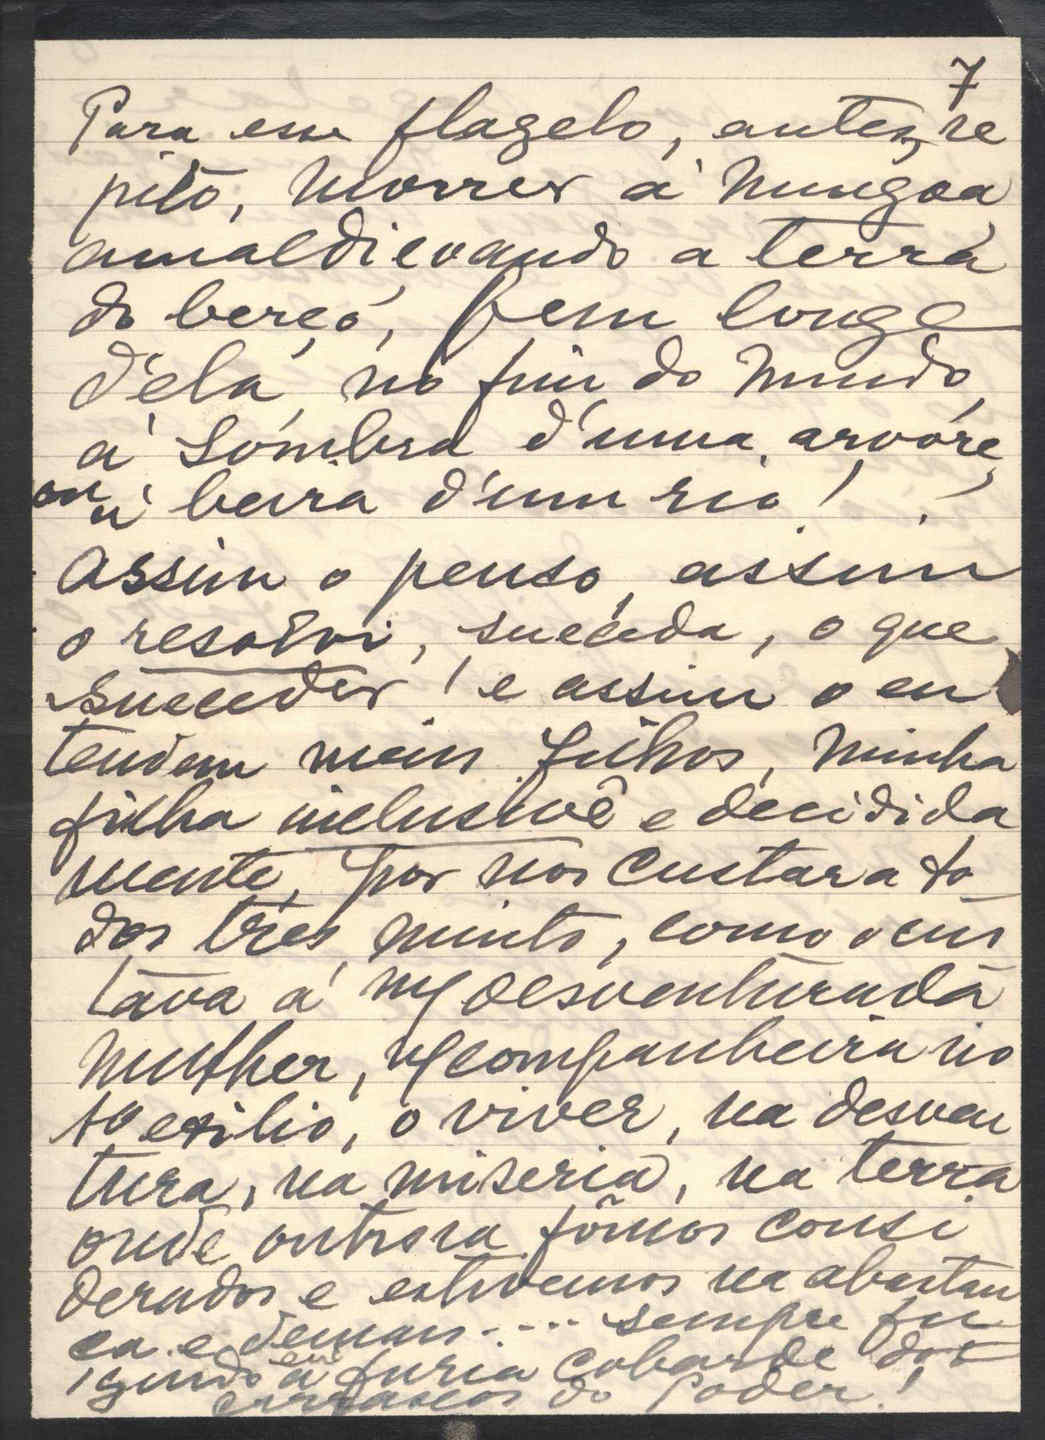 7
Para esse flagelo, antes, re
pito, morrer á mingoa
amaldiçoando a terra
do berço, bem longe
d'ela, no fim do mundo,
á sombra d'uma arvore,
ou á beira d'um rio!
Assim o penso, assim
o resolvi, suceda, o que
suceder! e assim o en
tendem meus filhos, minha
filha inclusivê e decidida
mente, por nos custar a to
dos três, muito, como o cus
tava á mª desventurada
mulher, mª companheira no
exilio, o viver, na desven
tura, na miseria, na terra
onde outrora fômos consi
derados e estivemos na abastan
ça e demais.... sempre fu
gindo á furia cobarde dos
carrascos do Poder!